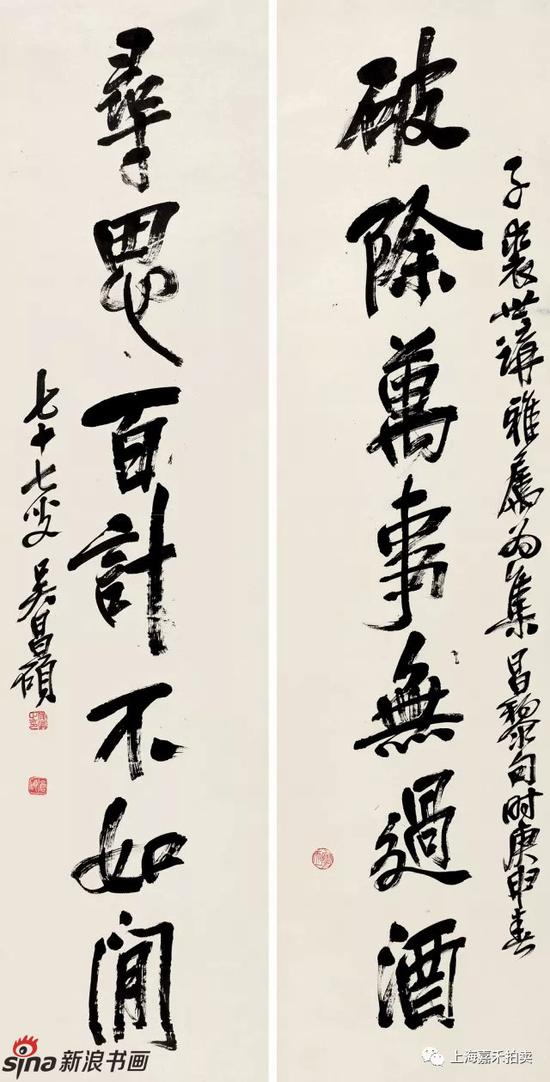 子裳世講雅屬為集昌黎句時庚申春
破除萬事無過酒
尋思百計不如閒
七十七叟 吳昌碩
sina 新浪书画
上海嘉禾拍卖